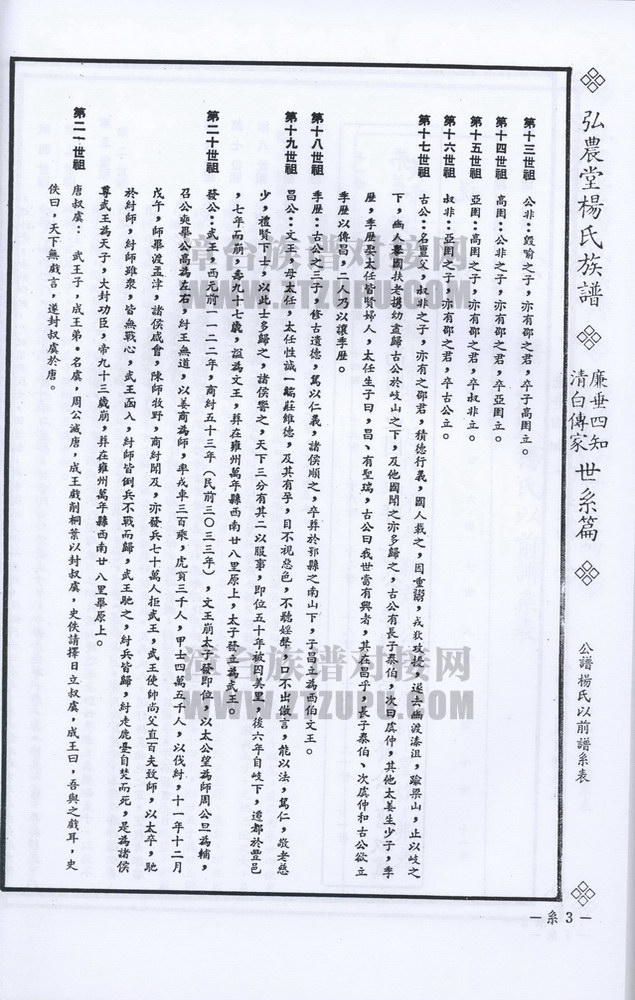 弘農堂楊氏族譜
廉垂四知
清白傳家
世系篇
公譜楊氏以前譜系表
第十三世祖 公非：毀喻之子，亦有邰之君，卒子高圉立。
第十四世祖 高圉：公非之子，亦有邰之君，卒亞圉立。
第十五世祖 亞圉：高圉之子，亦有邰之君，卒叔非立。
第十六世祖 叔非：亞圉之子，亦有邰之君，卒古公立。
第十七世祖 古公：名亶父，叔非之子，亦有之邰君，積德行義，國人載之，因重粥，戎狄攻擾，遂去豳渡漆沮，踰梁山，止以岐之
下，豳人舉國扶老攜幼盡歸古公於岐山之下，及他國聞之亦多歸之，古公有長子泰伯，次曰虞仲，其他太姜生少子，季
歷，季歷娶太任皆賢婦人，太任生子曰，昌、有聖瑞，古公曰我世當有興者，其在昌乎，長子泰伯、次虞仲和古公欲立
季歷以傳昌，二人乃以讓季歷。
第十八世祖 季歷：古公之三子，修古遺德，篤以仁義，諸侯順之，卒葬於鄂縣之南山下，子昌立為西伯文王。
第十九世祖 昌公：文王，母太任，太任性誠一端莊維德，及其有孕，目不視惡色，不聽婬聲，口不出傲言，能以法，篤仁，敬老慈
少，禮賢下士，以此士多歸之，諸侯響之，天下三分有其二以服事，即位五十年被囚羑里，後六年自岐下，遷都於豐邑
，七年而崩，壽九十七歲，諡為文王，葬在雍州萬年縣西南廿八里原上，太子發立為武王。
第二十世祖 發公：武王，西元前一一二二年，商紂五十三年（民前三０三三年），文王崩太子發即位，以太公望為師周公旦為輔，
召公奭畢公高為左右，紂王無道，以姜商為師，率戎車三百乘，虎賁三千人，甲士四萬五千人，以伐紂，十一年十二月
戊午，師畢渡孟津，諸侯咸會，陳師牧野，商紂聞及，亦發兵七十萬人拒武王，武王使師尚父直百夫致師，以太卒，馳
於紂師，紂師雖衆，皆無戰心，武王函入，紂師皆倒兵不戰而歸，武王馳之，紂兵皆歸，紂走鹿臺自焚而死，是為諸侯
尊武王為天子，大封功臣，帝九十三歲崩，葬在雍州萬年縣西南廿八里畢原上。
第二一世祖 唐叔虞： 武王子，成王弟。名虞，周公滅唐，成王戲削桐葉以封叔虞，史佚請擇日立叔虞，成王曰，吾與之戲耳，史
佚曰，天下無戲言，遂封叔虞於唐。
漳台族谱对接网
WWW.ZTZUPU.COM
漳台族谱对接网
WWW.ZTZUPU.COM
－系 3－